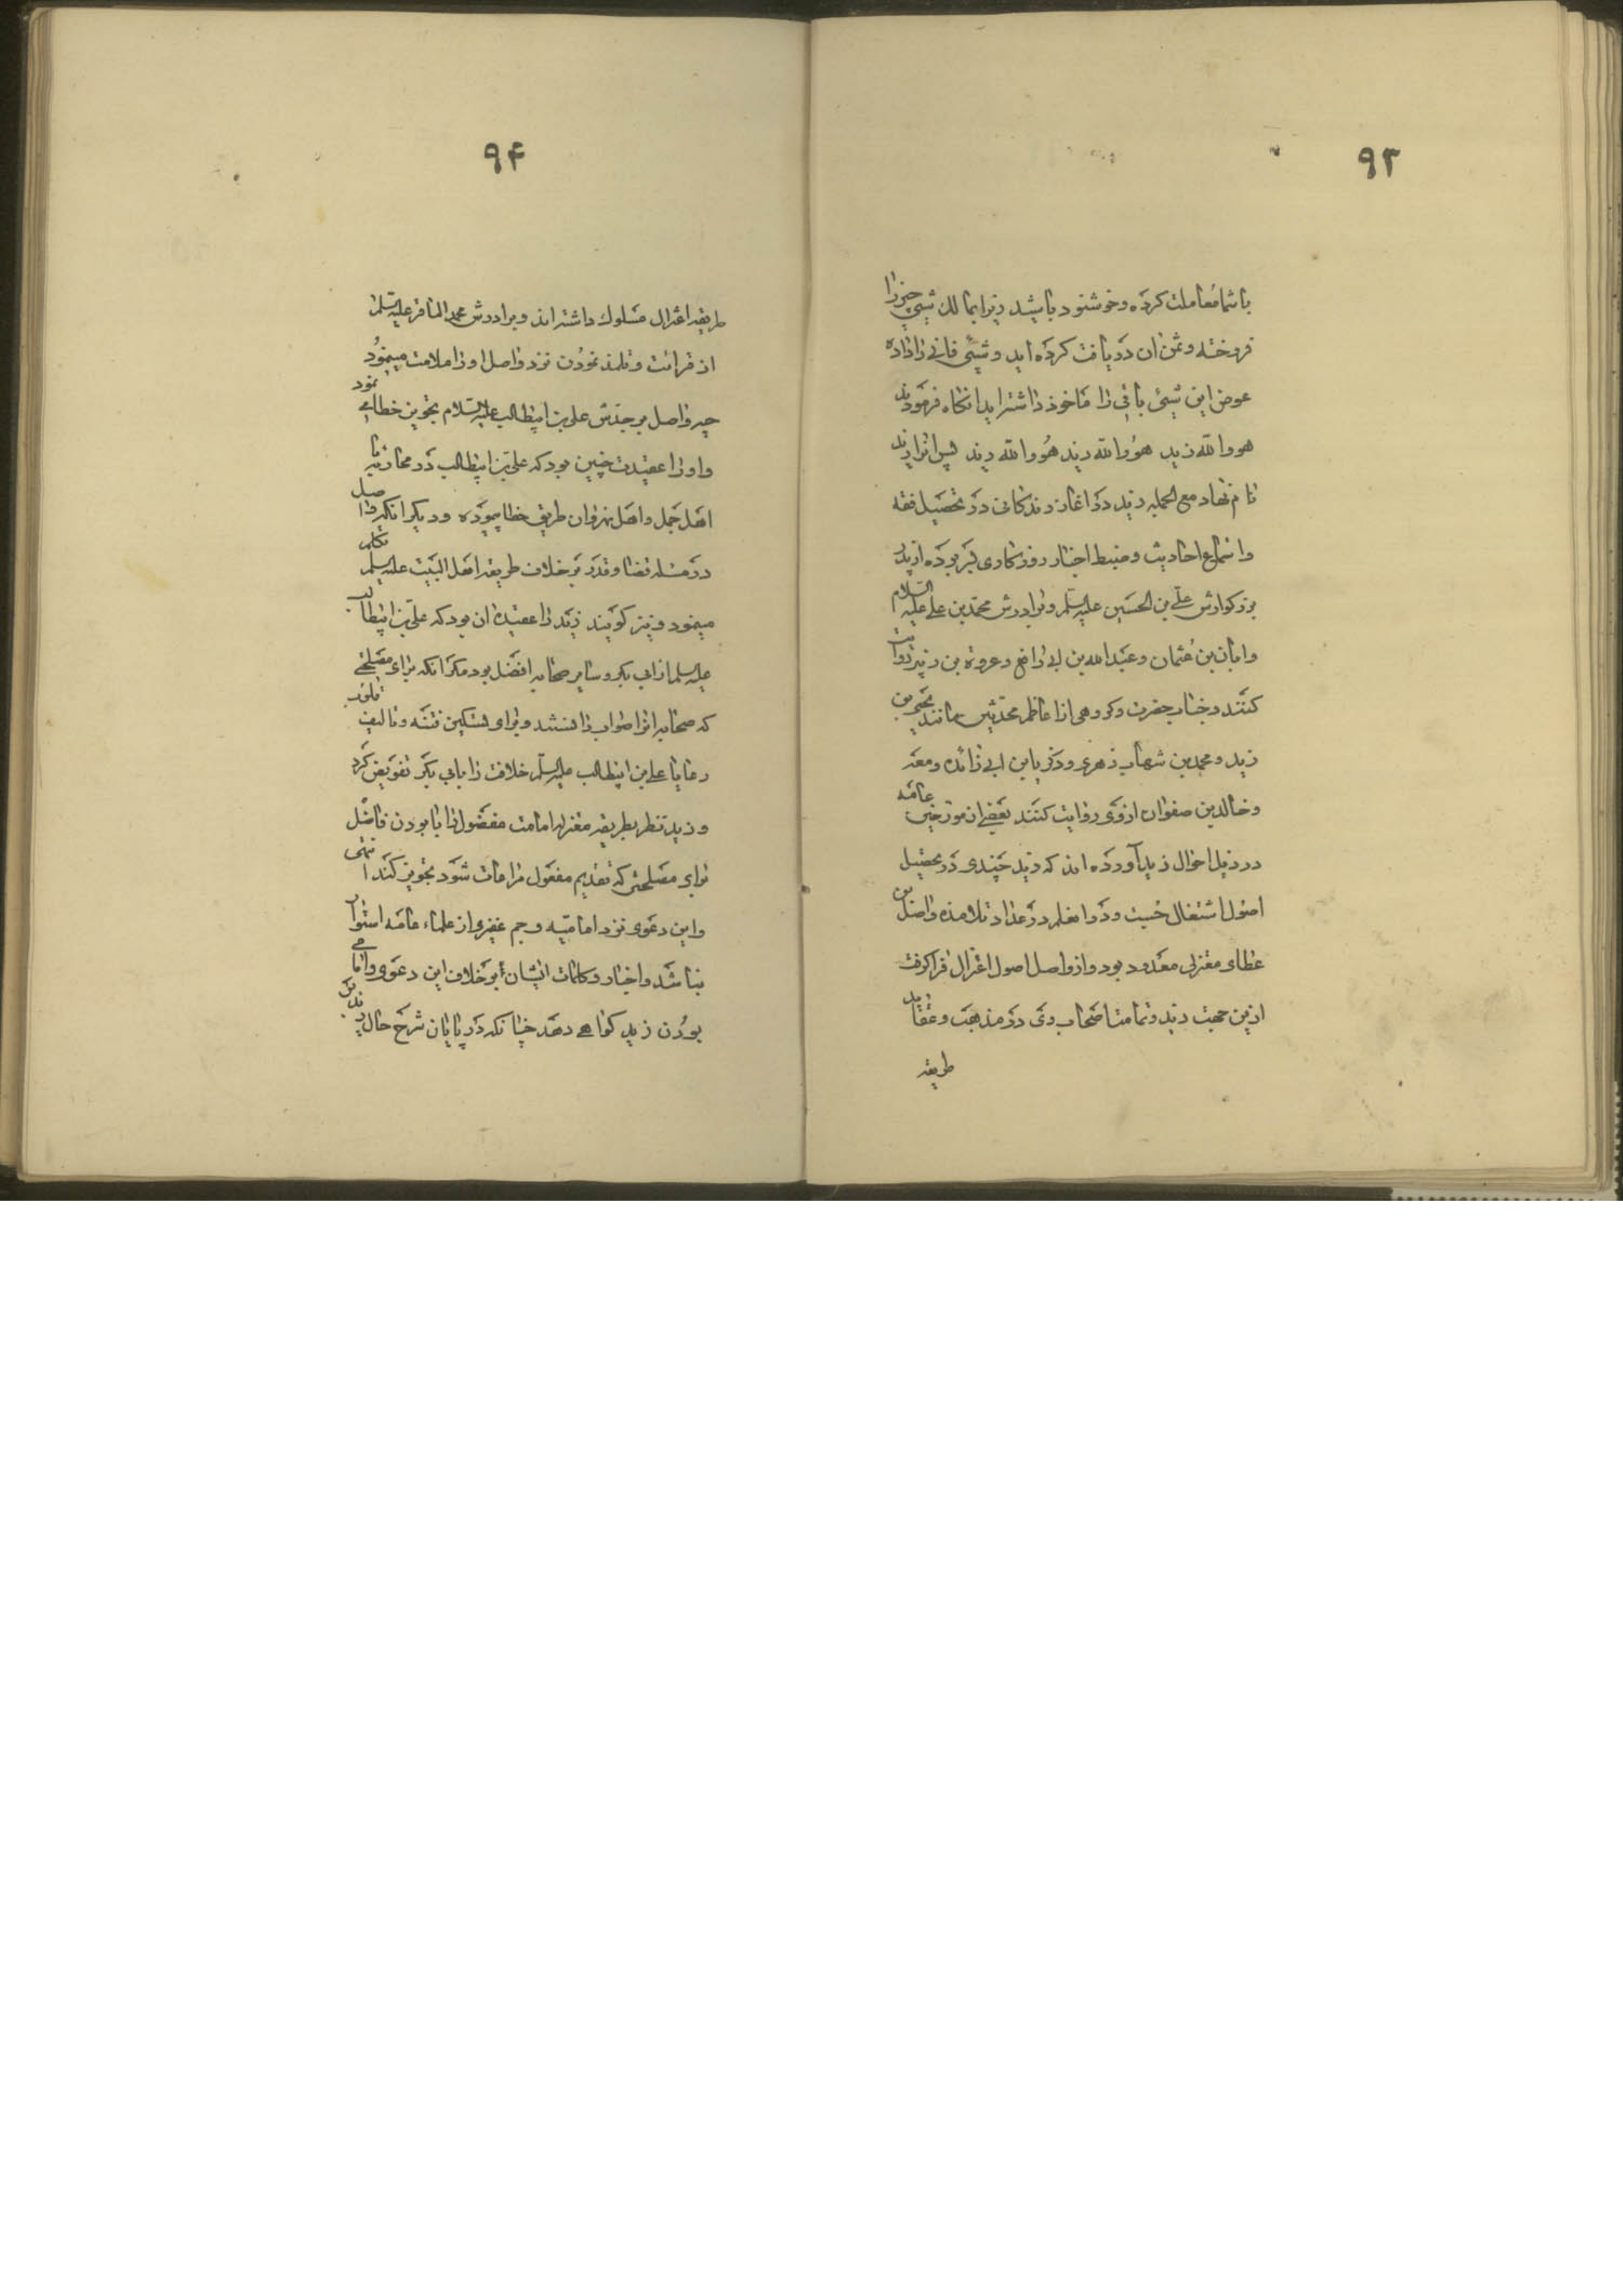 ۹۳
با شما معاملت کرده و خوشنود باشید زیرا بمالك شیئی چیز را
فروخته و ثمن ان دریافت کرده اید و شیئی فانی را داده
عوض این شیئی باقی را ماخوذ داشته اید انکاه فرمودند
هو والله زید هو والله زید هو والله زید پس انرا زید
نام نهاد مع الجمله زید در اغاز زندکانی در تحصیل فقه
و استماع احادیث و ضبط اخبار روزکاری بر بوده از پدر
بزرکوارش علی بن الحسین علیه السلم و برادرش محمد بن علی علیه السلام
و ابان بن عثمان و عبید الله بن ابی رافع و عروة بن زبیر روایت
کنند و جناب جعفر و کروهی از اعاظم محدثین مانند
زید و محمد بن شهاب زهری و زکریا بن ابی زائده و
و خالد بن صفوان از وی روایت کنند بعضی از مورخین عامه
در ذیل احوال زید آورده اند که زید چندی در تحصیل
اصول اشتغال جست و در معلم در عداد تلامذه واصل بن
عطای معتزلی معدود بود و از واصل اصول اعتزال فرا کرفت
ازین جهت زید و تمامت اصحاب وی در مذهب و عقاید
طریقه
۹۴
طریقه اعتزال مسلوك داشته اند و برادرش محمد الباقر علیه السلم
از قرائت و تلمذ نمودن نزد واصل او را ملامت مینمود
چه واصل بر جدش علی بن ابیطالب علیه السلام تجویز خطا می نمود
و او را عقیدت چنین بود که علی بن ابیطالب در محاربه با
اهل جمل و اهل نهروان طریق خطا پیموده و دیکر انکه واصل
در مسئله قضا و قدر بر خلاف طریقه اهل البیت علیه السلم تکلم
مینمود و نیز کویند زید را عقیده ان بود که علی بن ابیطالب
علیه السلم از ابی بکر و سایر صحابه افضل بود مکر انکه برای مصلحتی
که صحابه انرا صواب دانستند و برای تسکین فتنه و تالیف قلوب
رعایا علی بن ابیطالب علیه السلم خلافت را بابی بکر تفویض کرد
و زید نظر بطریقه معتزله امامت مفضول را با بودن فاضل
برای مصلحتی که تقدیم مفضول مراعات شود تجویز کند انتهی
و این دعوی نزد امامیه و جم غفیری از علماء عامه استوار
نباشد و اخبار و کلمات ایشان بر خلاف این دعوی و امامی
بودن زید کواهی دهد چنانکه در پایان شرح حال زید بن